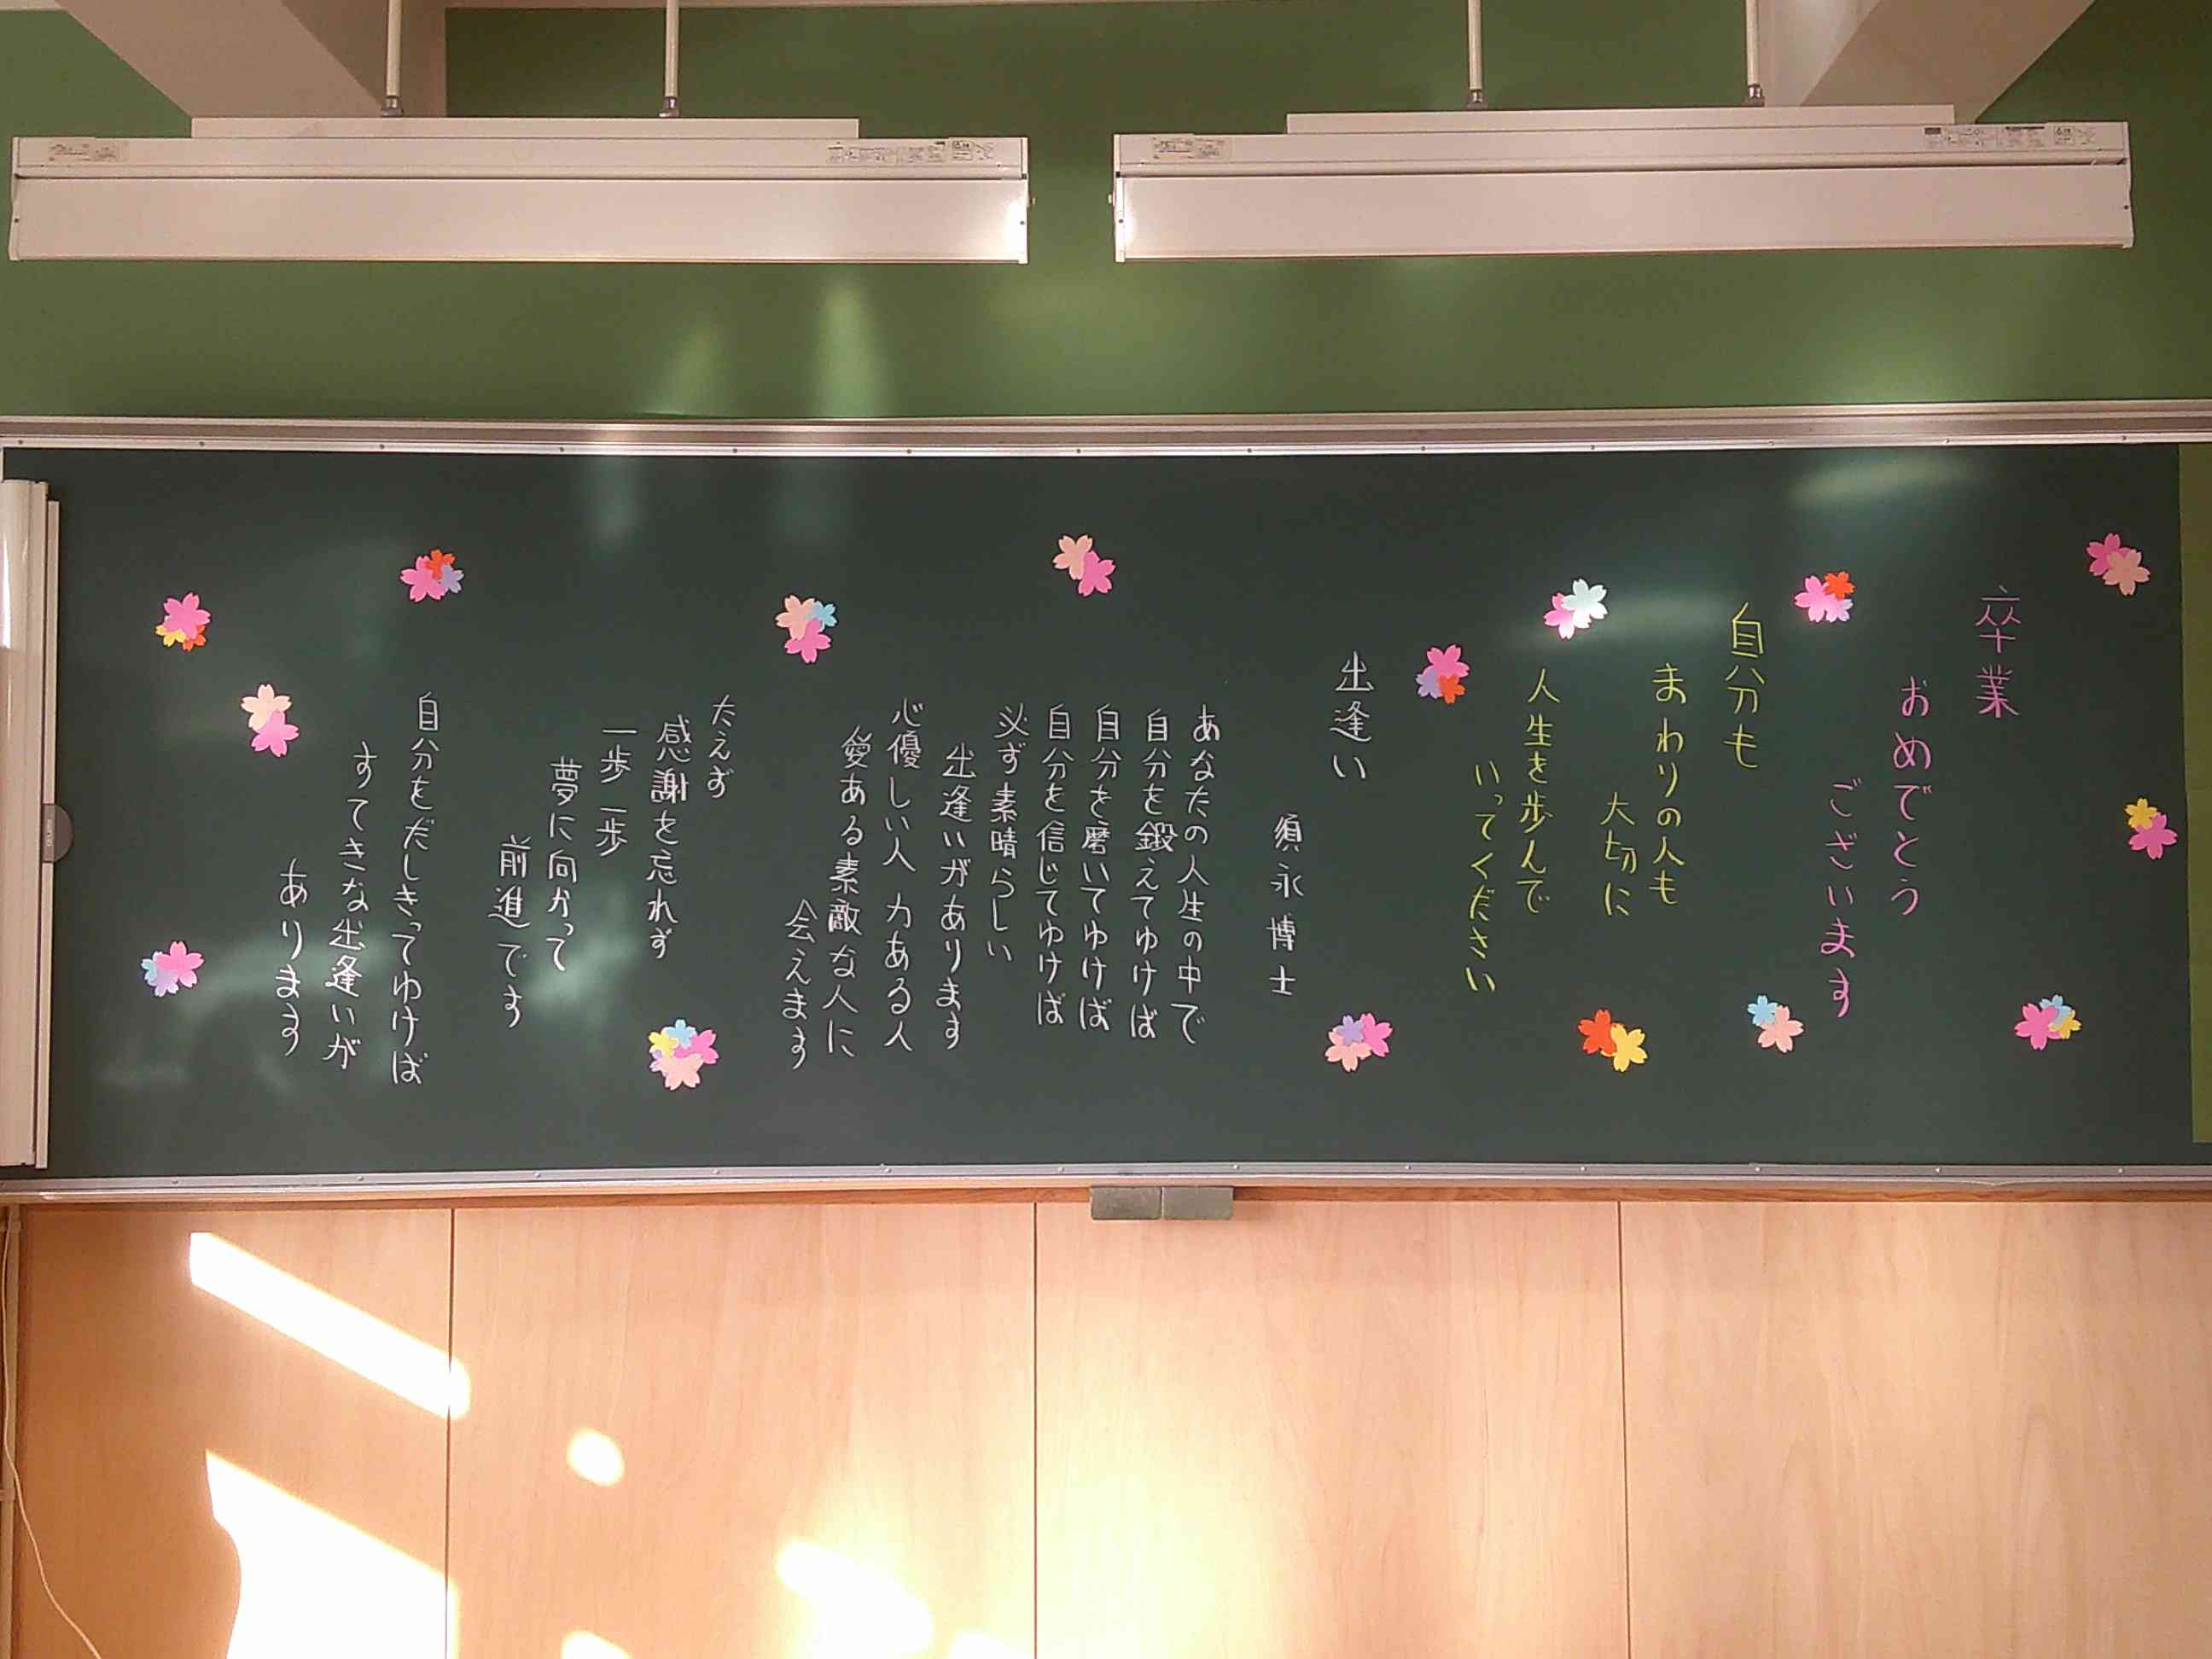 卒業
おめでとう
ございます
自分も
まわりの人も
大切に
人生を歩んで
いってください
出逢い
須永博士
あなたの人生の中で
自分を鍛えてゆけば
自分を磨いてゆけば
自分を信じてゆけば
必ず素晴らしい
出逢いがあります
心優しい人 力ある人
愛ある素敵な人に
会えます
たえず
感謝を忘れず
一歩一歩
夢に向かって
前進です
自分をだしきってゆけば
すてきな出逢いが
あります